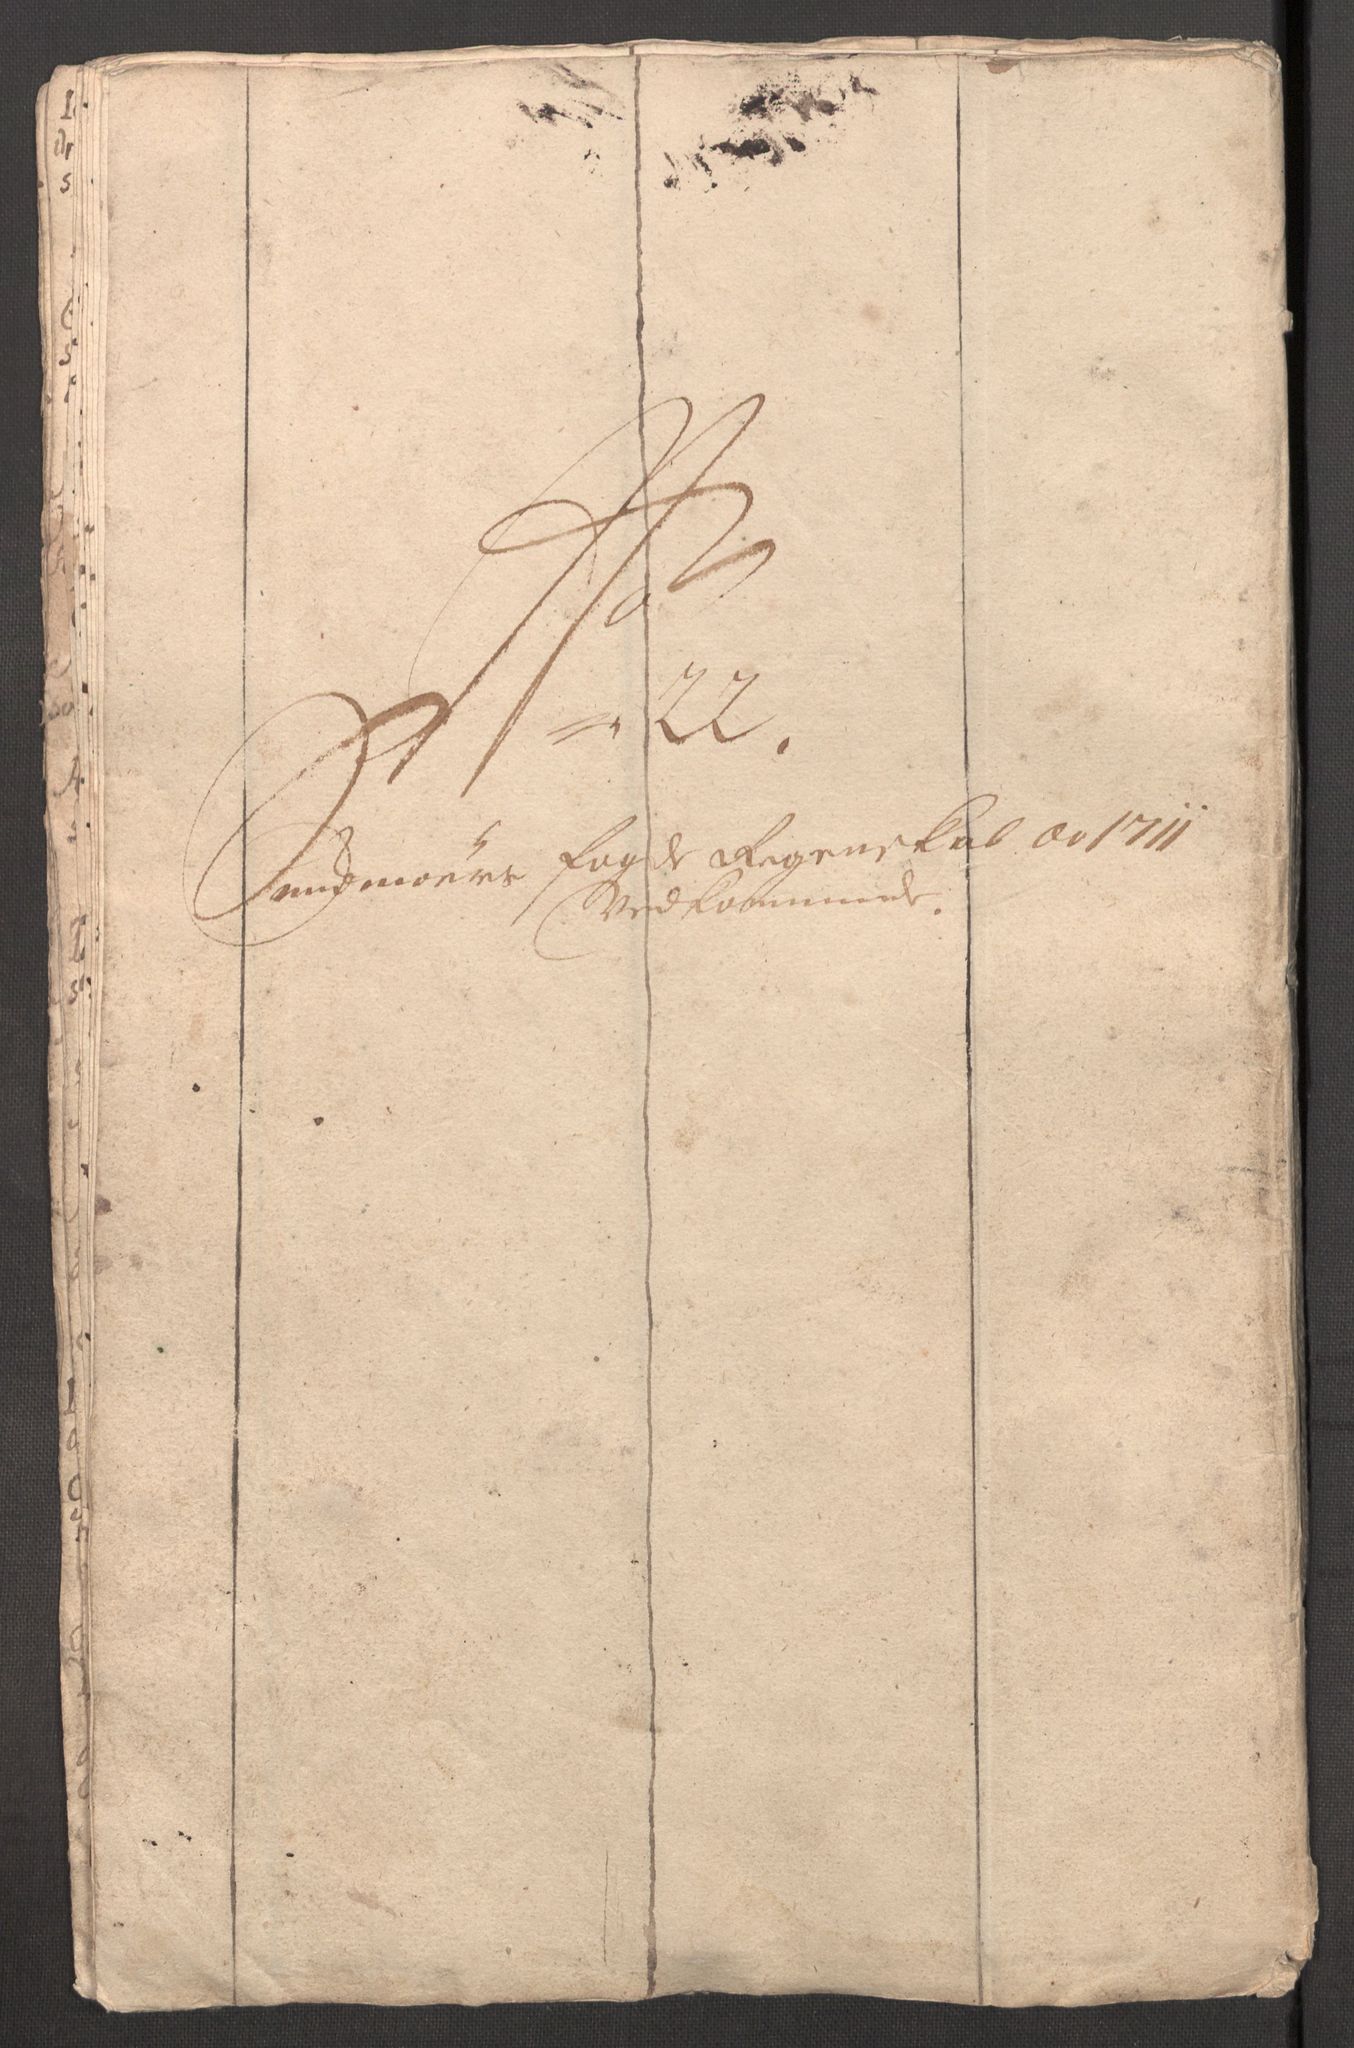 No
22.
Sundmøers fogde Regenskab Ao 1711
Vedkommende.